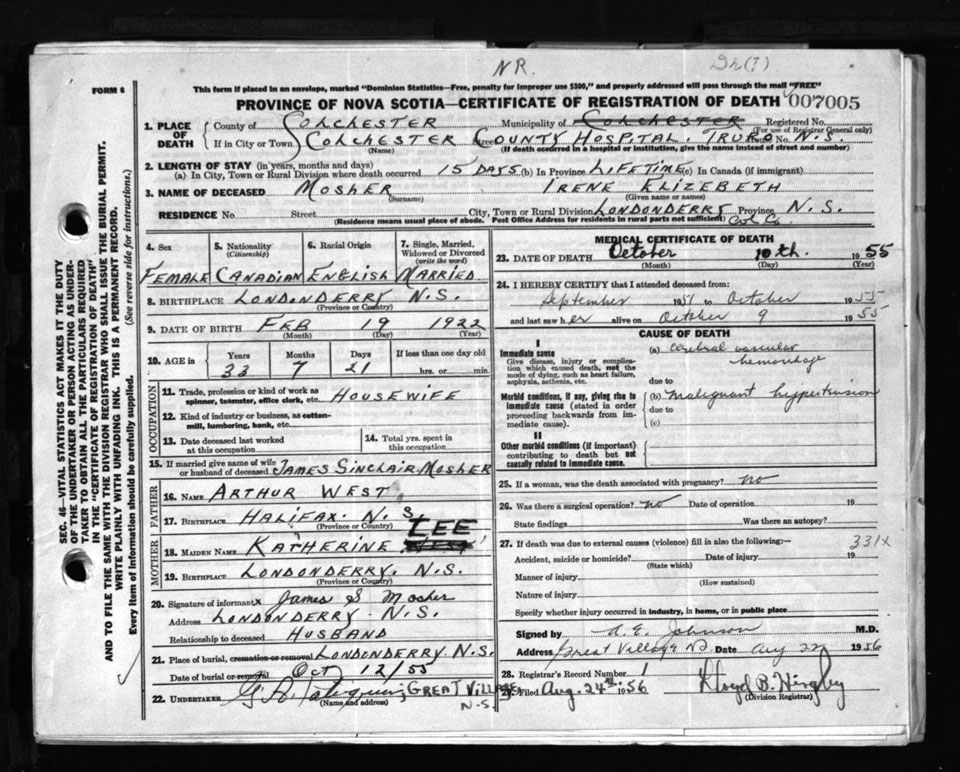 NR.
FORM 6
This form if placed in an envelope, marked "Dominion Statistics—Free, penalty for improper use $300," and properly addressed will pass through the mail "FREE"
PROVINCE OF NOVA SCOTIA—CERTIFICATE OF REGISTRATION OF DEATH 007005
1. PLACE OF DEATH
County of COLCHESTER Municipality of COLCHESTER Registered No.
(For use of Registrar General only)
If in City or Town COLCHESTER COUNTY HOSPITAL, TRURO N.S.
(Name) (If death occurred in a hospital or institution, give the name instead of street and number)
2. LENGTH OF STAY (in years, months and days)
(a) In City, Town or Rural Division where death occurred 15 DAYS (b) In Province LIFETIME (c) In Canada (if immigrant)
3. NAME OF DECEASED MOSHER IRENE ELIZEBETH
(Surname) (Given name or names)
RESIDENCE No. Street City, Town or Rural Division LONDONDERRY Province N.S.
(Residence means usual place of abode. Post Office Address for residents in rural parts not sufficient) Col Co
4. Sex 5. Nationality (Citizenship) 6. Racial Origin 7. Single, Married, Widowed or Divorced (write the word)
FEMALE CANADIAN ENGLISH MARRIED
8. BIRTHPLACE LONDONDERRY N.S.
(Province or Country)
9. DATE OF BIRTH FEB 19 1922
(Month) (Day) (Year)
10. AGE in Years Months Days If less than one day old
33 7 21 hrs. or min.
OCCUPATION
11. Trade, profession or kind of work as spinner, teamster, office clerk, etc. HOUSEWIFE
12. Kind of industry or business, as cotton-mill, lumbering, bank, etc.
13. Date deceased last worked at this occupation 14. Total yrs. spent in this occupation
15. If married give name of wife or husband of deceased JAMES SINCLAIR MOSHER
FATHER
16. NAME ARTHUR WEST
17. BIRTHPLACE HALIFAX N.S.
(Province or Country)
MOTHER
18. MAIDEN NAME KATHERINE LEE
19. BIRTHPLACE LONDONDERRY. N.S.
(Province or Country)
20. Signature of informant x James S Mosher
Address LONDONDERRY. N.S.
Relationship to deceased HUSBAND
21. Place of burial, cremation or removal LONDONDERRY N.S.
Date of burial or removal OCT 12/55
22. UNDERTAKER GREAT VILLAGE
(Name and address) N.S.
MEDICAL CERTIFICATE OF DEATH
23. DATE OF DEATH October 10th. 1955
(Month) (Day) (Year)
24. I HEREBY CERTIFY that I attended deceased from:
September 195 to October 1955
and last saw her alive on October 9 1955
CAUSE OF DEATH
I
Immediate cause
Give disease, injury or complication which caused death, not the mode of dying, such as heart failure, asphyxia, asthenia, etc.
(a) cerebral vascular hemorrhage
due to
Morbid conditions, if any, giving rise to immediate cause (stated in order proceeding backwards from immediate cause).
(b) malignant hypertension
due to
(c)
II
Other morbid conditions (if important) contributing to death but not causally related to immediate cause.
25. If a woman, was the death associated with pregnancy? no
26. Was there a surgical operation? no Date of operation 19
State findings Was there an autopsy?
27. If death was due to external causes (violence) fill in also the following:— 331X
Accident, suicide or homicide? Date of injury 19
(State which)
Manner of injury
(How sustained)
Nature of injury
Specify whether injury occurred in industry, in home, or in public place
Signed by A. E. Johnson M.D.
Address Great Village NS Date Aug 22 1956
28. Registrar's Record Number 1
29. Filed Aug. 24th 1956
(Division Registrar)
SEC. 46—VITAL STATISTICS ACT MAKES IT THE DUTY
OF THE UNDERTAKER OR PERSON ACTING AS UNDER-
TAKER TO OBTAIN ALL THE PARTICULARS REQUIRED
IN THE "CERTIFICATE OF REGISTRATION OF DEATH"
AND TO FILE THE SAME WITH THE DIVISION REGISTRAR WHO SHALL ISSUE THE BURIAL PERMIT.
WRITE PLAINLY WITH UNFADING INK. THIS IS A PERMANENT RECORD.
Every item of information should be carefully supplied. (See reverse side for instructions.)